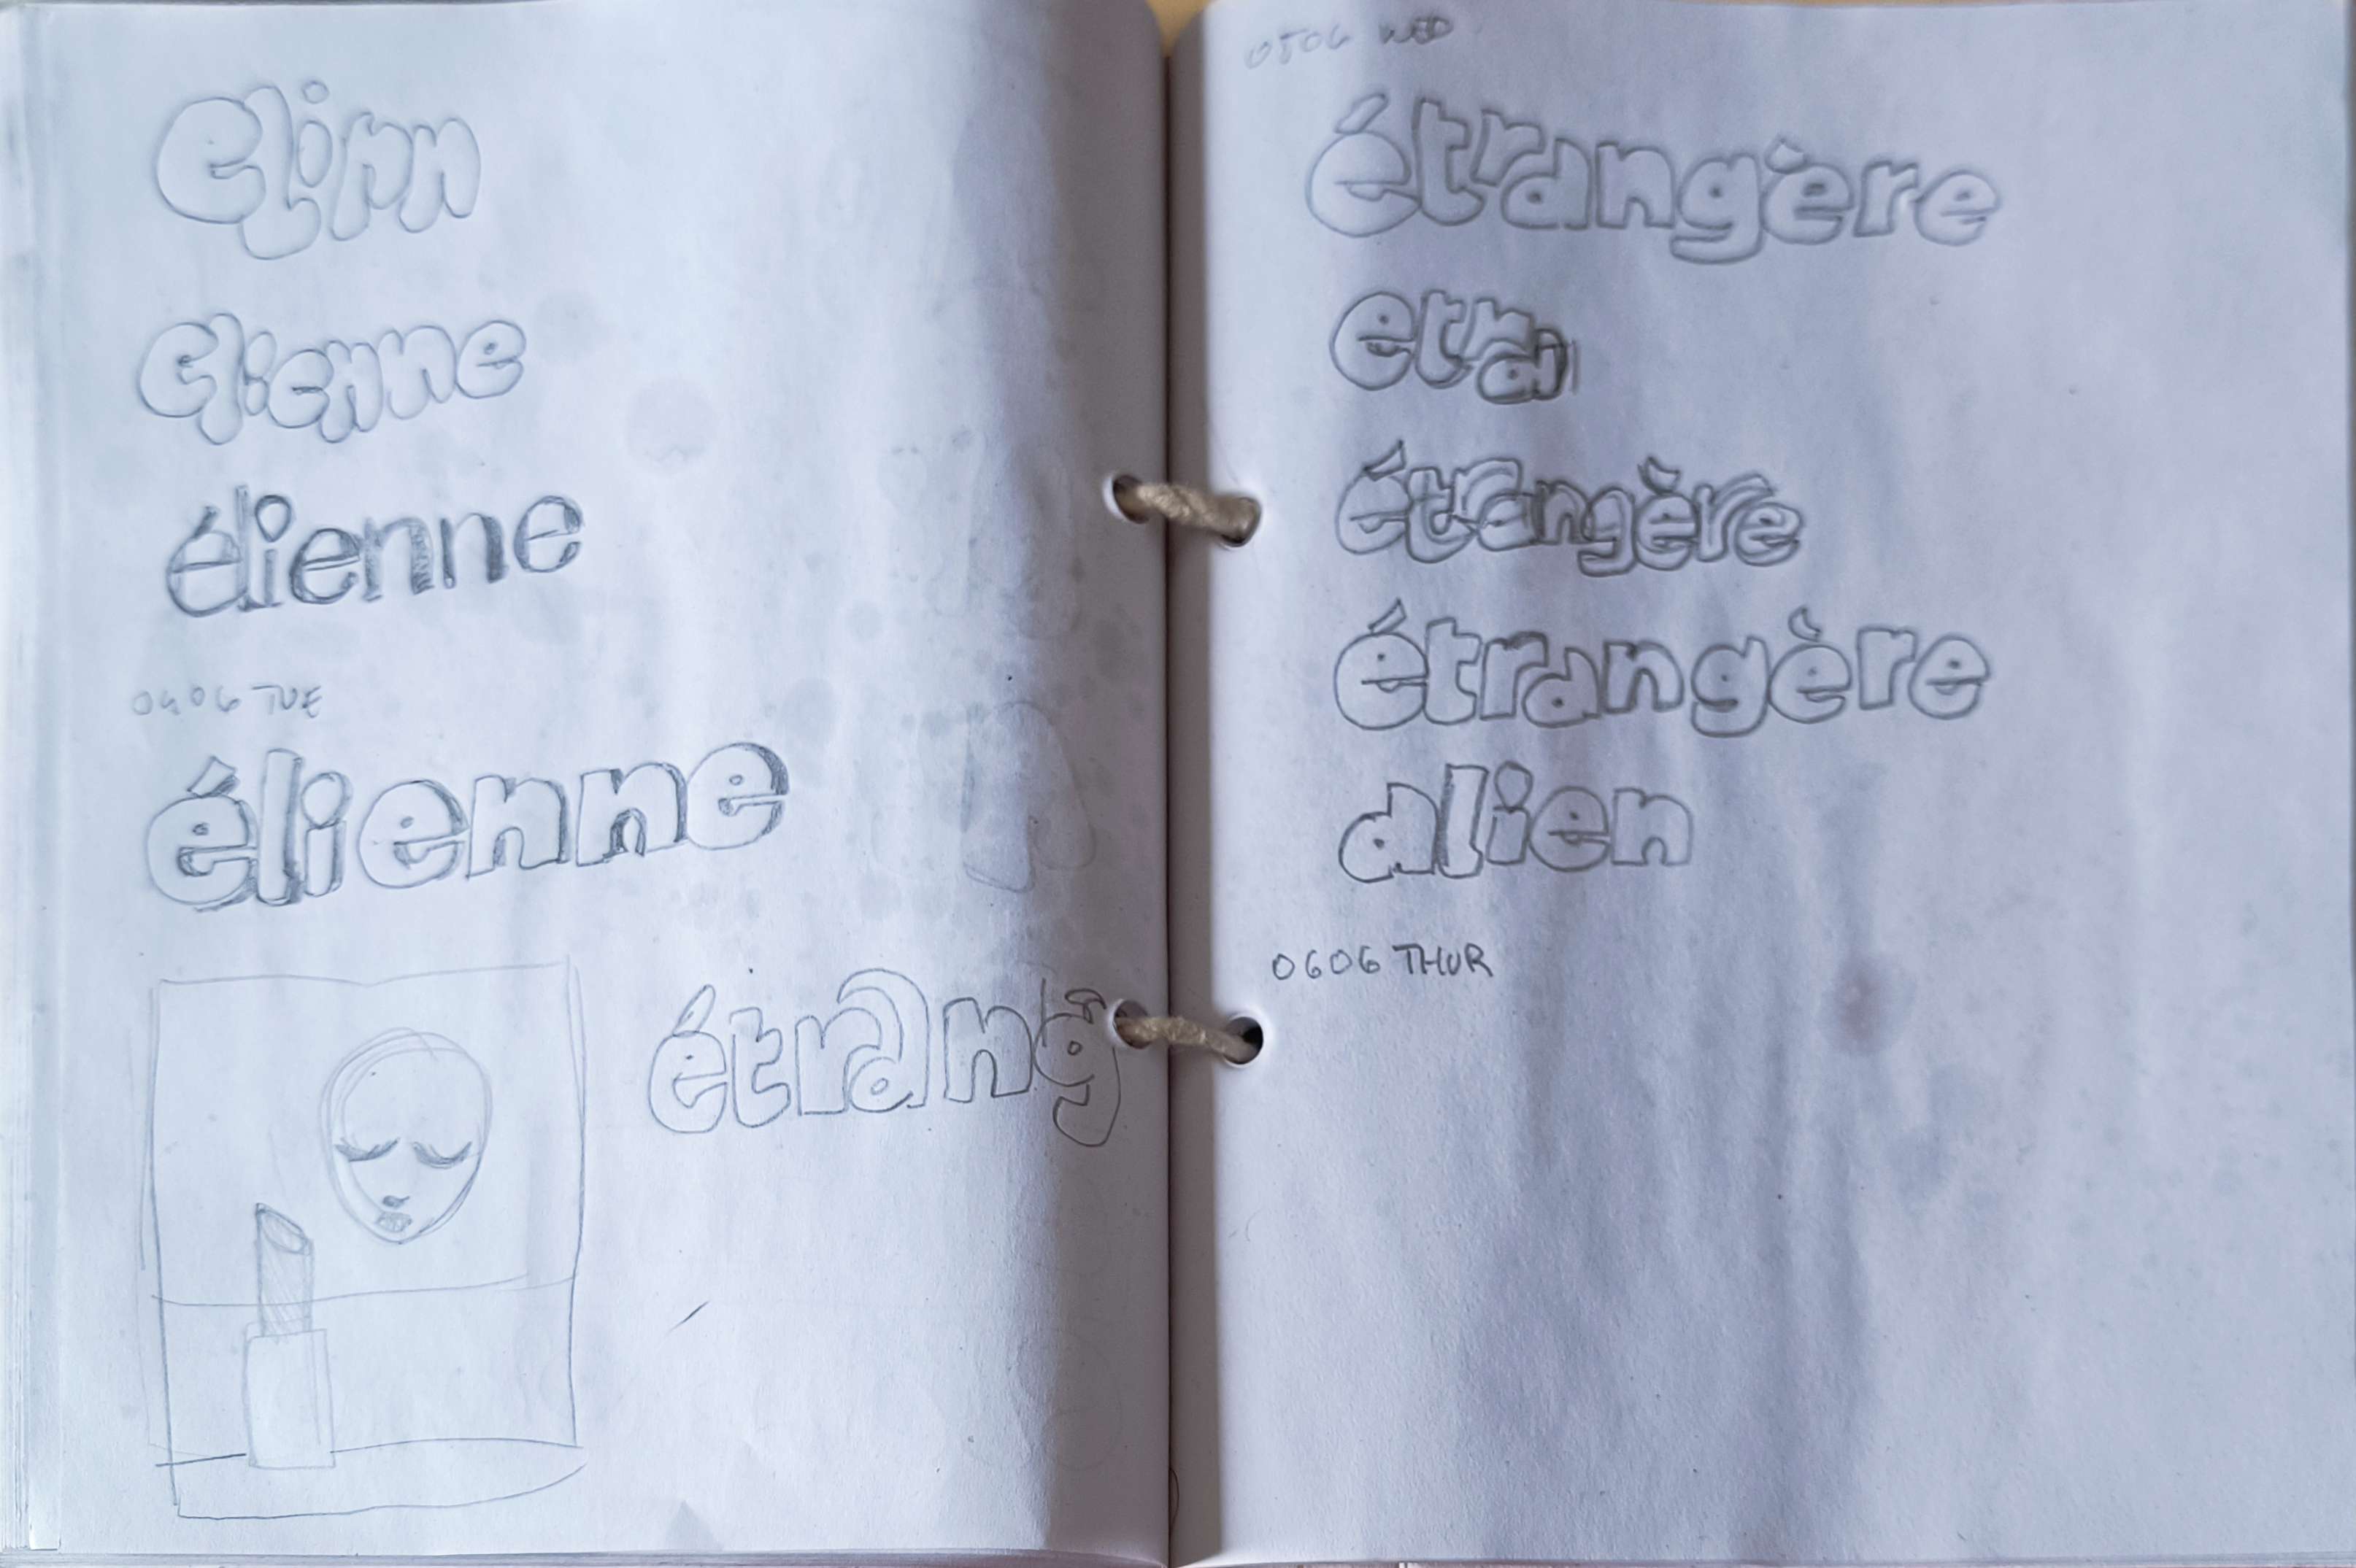 elinn
elienne
élienne
0406 TUE
élienne
étrang
0506 WED
étrangère
etrai
étrangère
étrangère
alien
0606 THUR